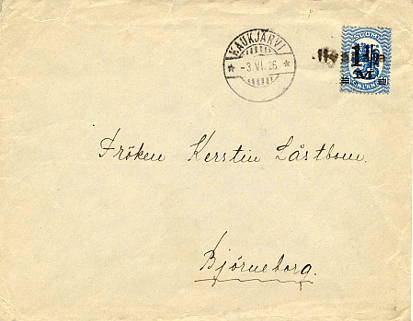 KAUKJÄRVI
-3.VI.26
SUOMI
1½
FINLAND
Fröken Kerstin Låstbom.
Björneborg.